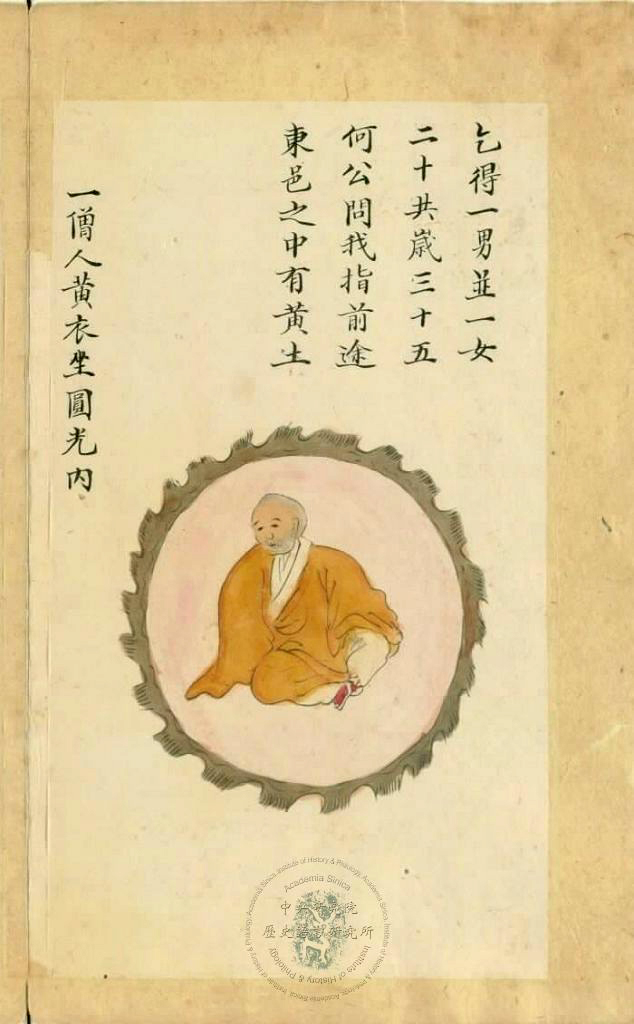 乞得一男並一女
二十共歳三十五
何公問我指前途
東邑之中有黄土
一僧人黄衣坐圓光内
Academia Sinica
中央研究院
歷史語言研究所
Institute of History & Philology